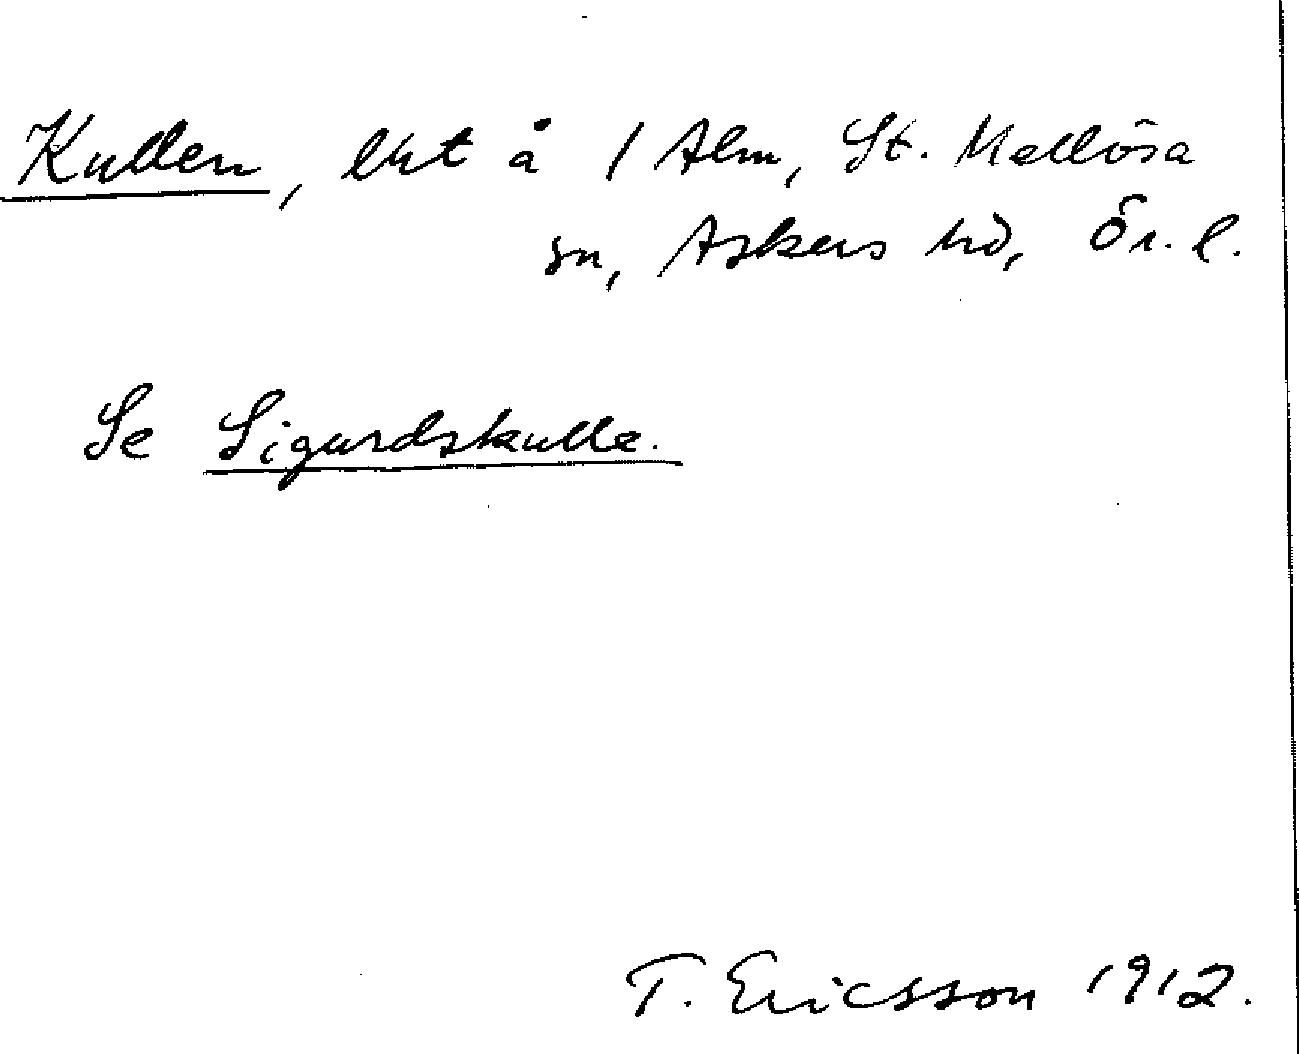 Kullen, lht å 1 Alm, St. Mellösa
sn, Askers hd, Ör. l.
Se Sigurdskulle.
T. Ericsson 1912.